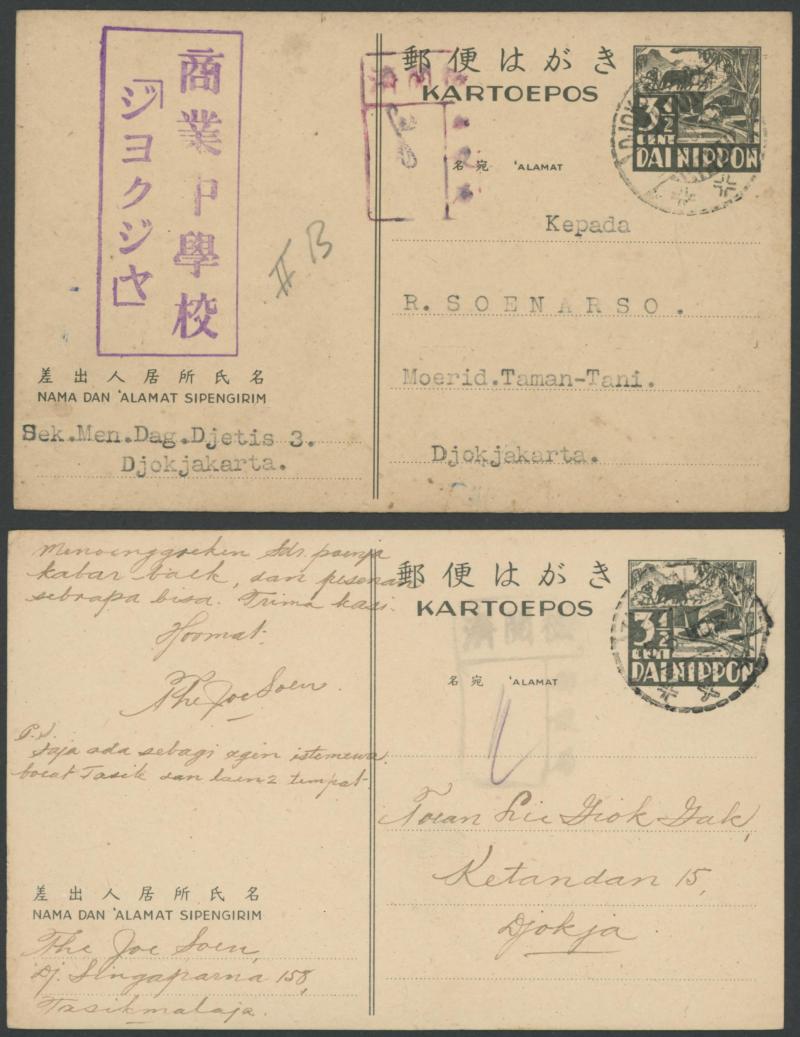 商業中學校
「ジヨクジヤ」
II B
差出人居所氏名
NAMA DAN 'ALAMAT SIPENGIRIM
Sek.Men.Dag.Djetis 3.
Djokjakarta.
郵便はがき
KARTOEPOS
名宛 'ALAMAT
3½
CENT
DAI NIPPON
Kepada
R. SOENARSO.
Moerid.Taman-Tani.
Djokjakarta.
Menoenggoeken Sdr. poenja
kabar baik, dan pesenan
sebrapa bisa. Trima kasi.
Hormat.
The Joe Soen.
P.S.
Saja ada sebagi agen istemewa
boeat Tasik dan laen2 tempat.
差出人居所氏名
NAMA DAN 'ALAMAT SIPENGIRIM
The Joe Soen,
Dj. Singaparna 158,
Tasikmalaja.
郵便はがき
KARTOEPOS
檢閲濟
名宛 'ALAMAT
3½
CENT
DAI NIPPON
Toean Lie Giok Gak,
Ketandan 15,
Djokja.